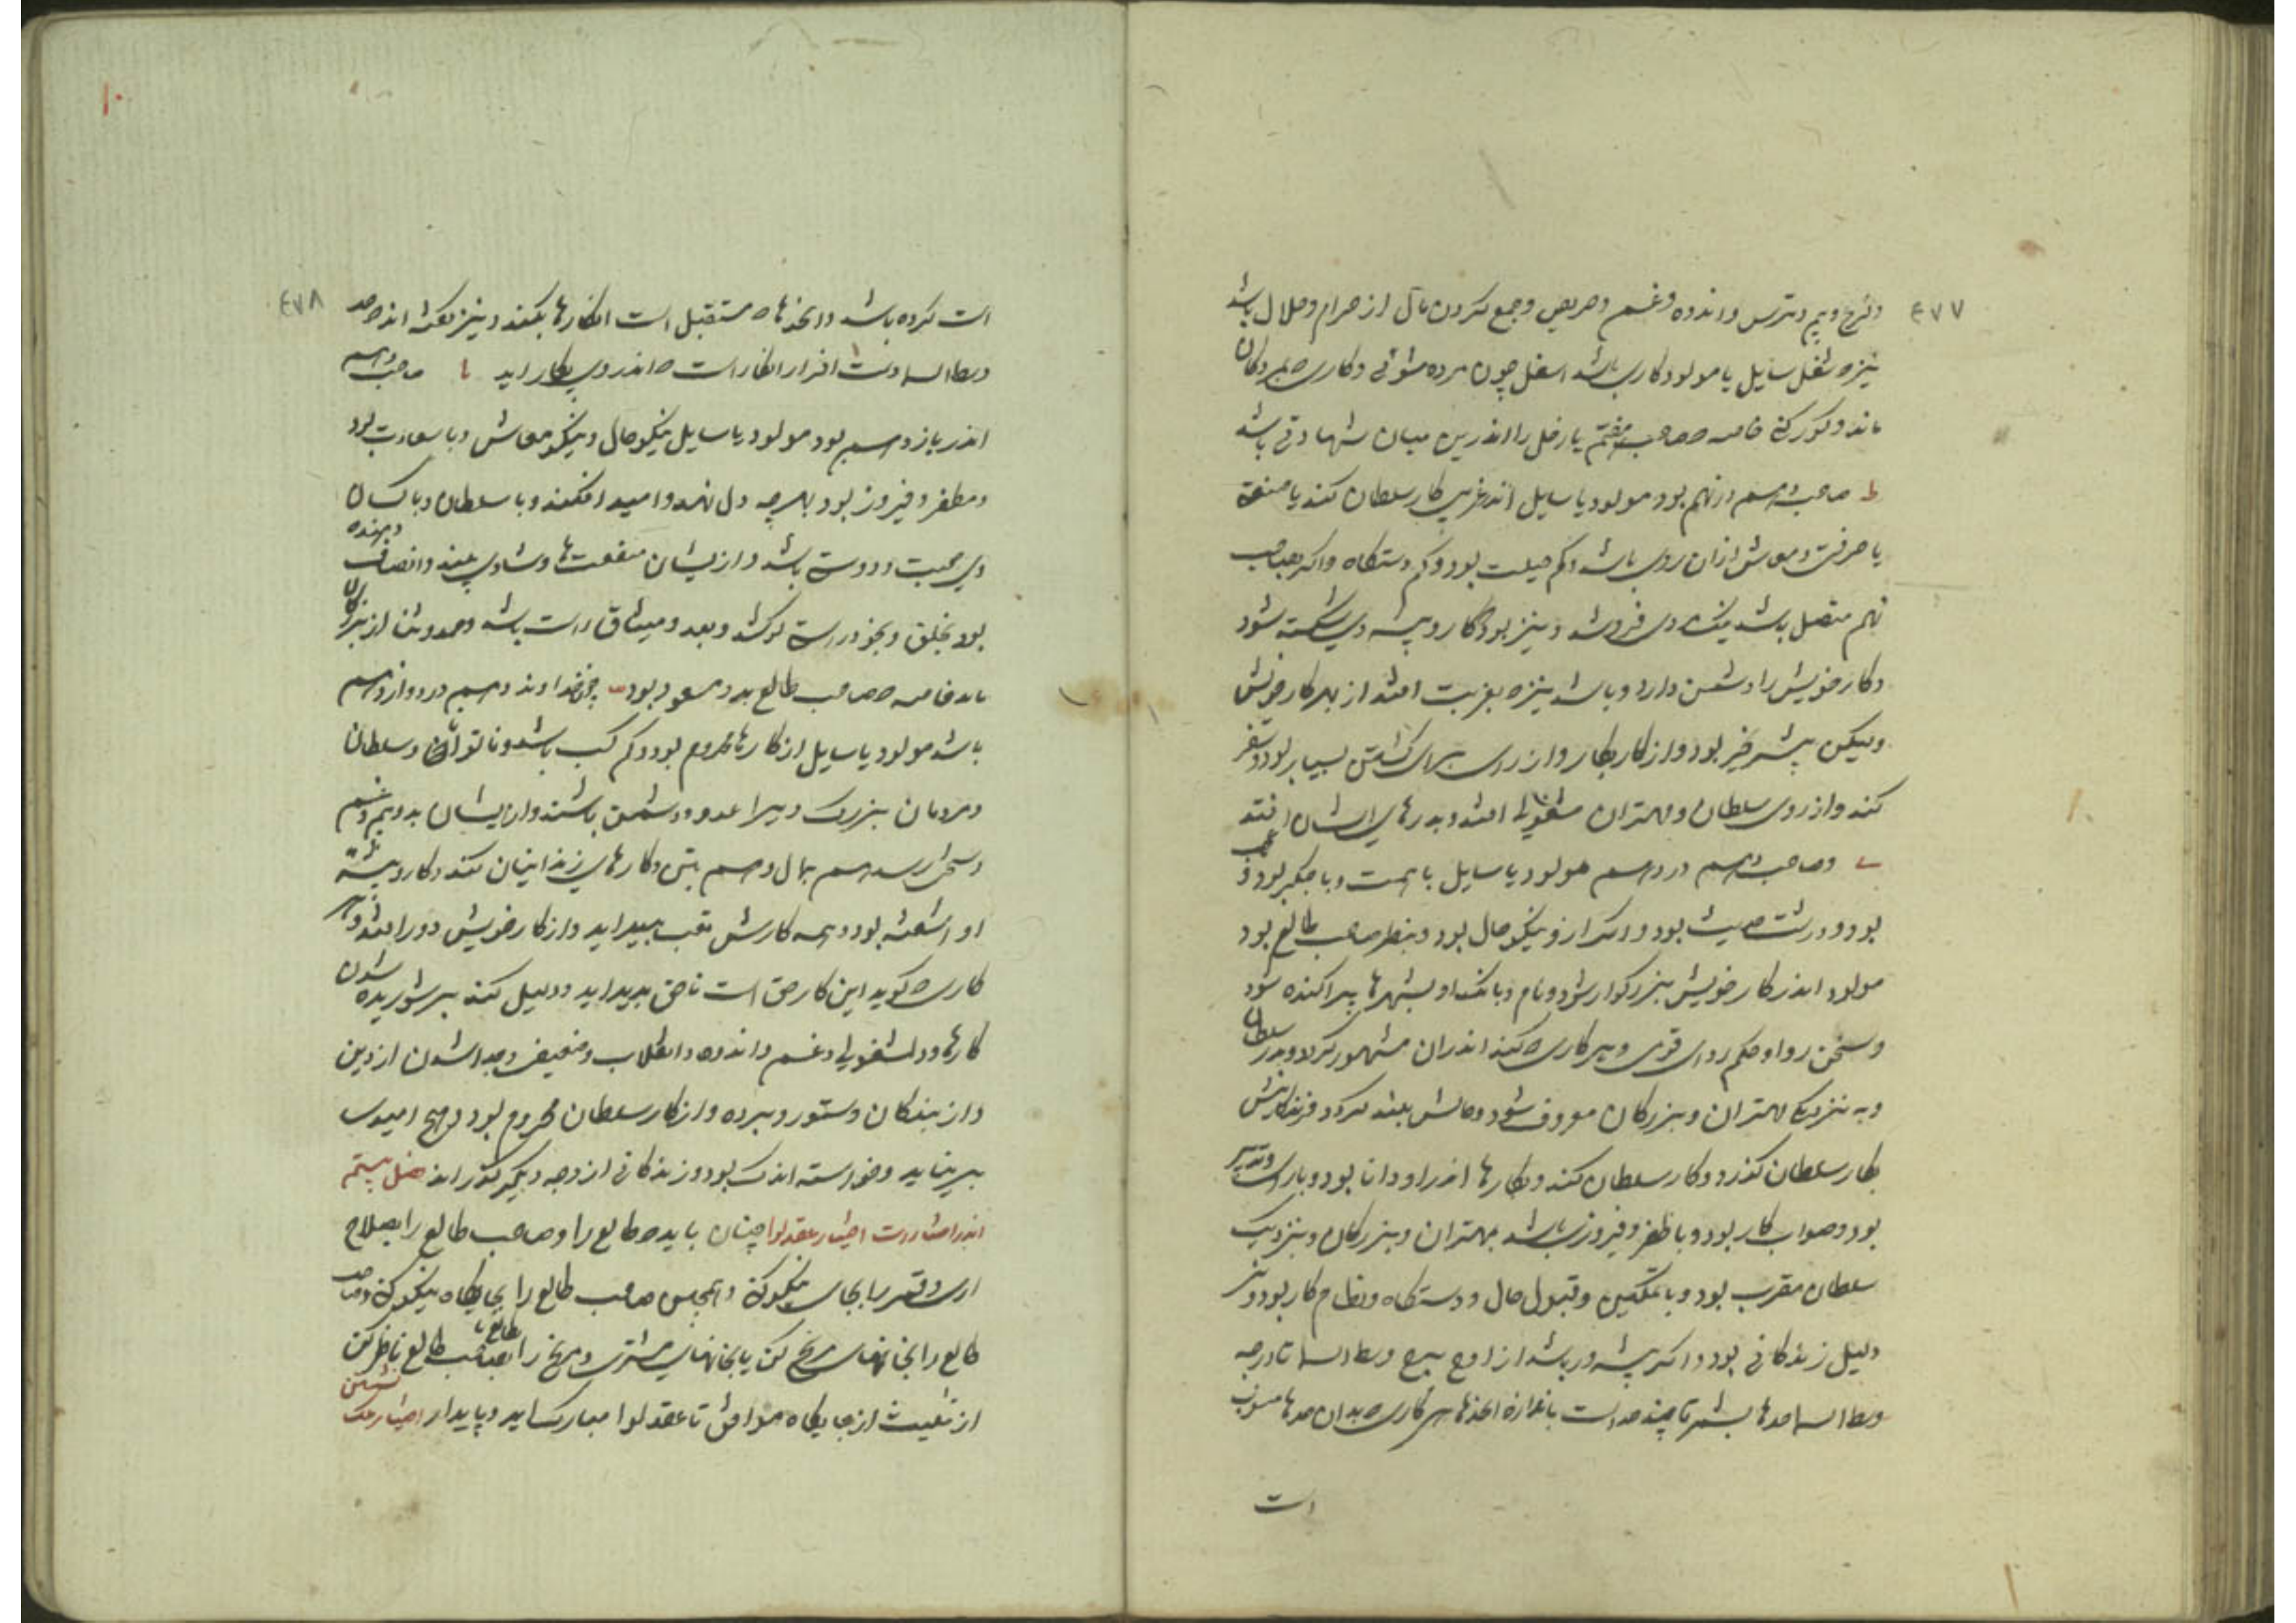 ٤٧٧
ورنج وبیم وترس واندوه وغم وحریص وجمع کردن مال از حرام وحلال باشد
نیزه شغل سایل یا مولود کاری باشد اسفل چون مرده شوئی وکاری که بمردکان
ماند وکورکنی خاصه که صاحب هفتم یا زحل را اندرین میان شهادتی باشد
ط صاحب دهم در نهم بود مولود یا سایل اندر غریبی کار سلطان کند یا صنعة
یا حرفتی ومعاش از آن روی باشد وکم حیلت بود وکم دستکاه واکر بصاحب
نهم متصل باشد وی فروشد ونیز بود کار وپیشه وی شکسته شود
وکار خویش را دشمن دارد وباشد نیزه بغربت افتد از بهر کار خویش
ولیکن پیشرخیز بود واز کار بکار واز رای برای کشتن بسیار بود وسفر
کند واز روی سلطان ومهتران مشغولی افتد وبدرهای ایشان افتد
ی وصاحب دهم در دهم مولود یا سایل با همت وبا متکبر بود و
بود ودرشت حدیث بود ونیکو حال بود وبنظر صاحب طالع بود
مولود اندر کار خویش بزرکوار شود ونام وبانک او بشهرها پراکنده شود
وسخن روا وحکم روای قوی وبهر کاری که کند اندران مشهور کردد وبدر سلطان
وبه نزدیک مهتران وبزرکان معروف شود وحالش بلند کردد فرزندانش
بکار سلطان کذرد وکار سلطان کند وبکارها اندر او دانا بود وبا رای وتدبیر
بود وصواب کار بود وبا ظفر وفیروزی باشد بمهتران وبزرکان وبنزدیک
سلطان مقرب بود وبا تمکین وقبول حال ودستکاه ونظام کار بود ونیز
دلیل زندکانی بود واکر پیشه ور باشد از اوج برج وسط السما تا درجه
وسط السما حدها بشمر تا چند حد است باندازه آن حدها هر کاری که بدان حدها منسوب
است
٤٧٨
است کرده باشد وآن حدها که مستقبل است آن کارها بکند ونیز بکند اند حد
وسط السما وقت افزار آن کار است که اندر وی بکار اید یا صاحب دهم
اندر یازدهم بود مولود یا سایل نیکو حال ونیکو معاش وبا سعادت بود
ومظفر وفیروز بود بهرچه دل نهد وامید افکند وبا سلطان وبا کسان
وی محبت ودوستی باشد واز یشان منفعت ها وشادی بیند وانصاف دهنده
بود بخلق وبخود راستی کوشد وبعهد ومیثاق راست باشد وحمد وثنا از بزرکان
یابد خاصه که صاحب طالع بدو مسعود بود یب چون خداوند دهم در دوازدهم
باشد مولود یا سایل از کارها محروم بود وکم کسب باشد وناتوان وسلطان
ومردمان بزرک ویرا عدو ودشمن باشند واز ایشان بدو بیم وغم
وسختی رسد هم بمال وهم بتن وکارهای زندانیان کند وکار وپیشه
او آشفته بود وهمه کارش بتعب پدید اید واز کار خویش دور افتد وبهر
کاری که کوید این کار حق است ناحق پدید اید ودلیل کند بر شوریده شدن
کارها ودل مشغولی وغم واندوه وانقلاب وضعیف وجدا شدن از دین
واز بندکان وستور وبرده واز کار سلطان محروم بود وهیچ امیدی
بر نیاید وخواسته اندک بود وزندکانی از وجه دیکر کذراند فصل بیستم
اندر اختیارات اختیار عقد لوا چنان باید که طالع را وصاحب طالع را بصلاح
اری وقمر را بجای نیکو کن وهمچنین صاحب طالع را بجایکاه نیکو کن وصاحب
طالع را بخانهای مریخ کن یا بخانهای مشتری ومریخ را بصاحب طالع ناظر کن
از تثلیث از جایکاه موافق تا عقد لوا مبارک اید وپایدار اختیار ملک نشستن